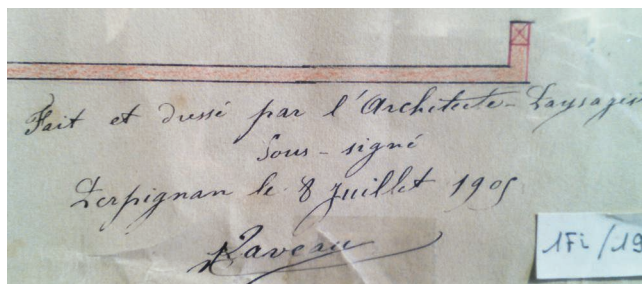 Fait et dressé par l'Architecte-Paysagis
Sous-signé
Perpignan le 8 Juillet 1905
Raveau
1Fi/19